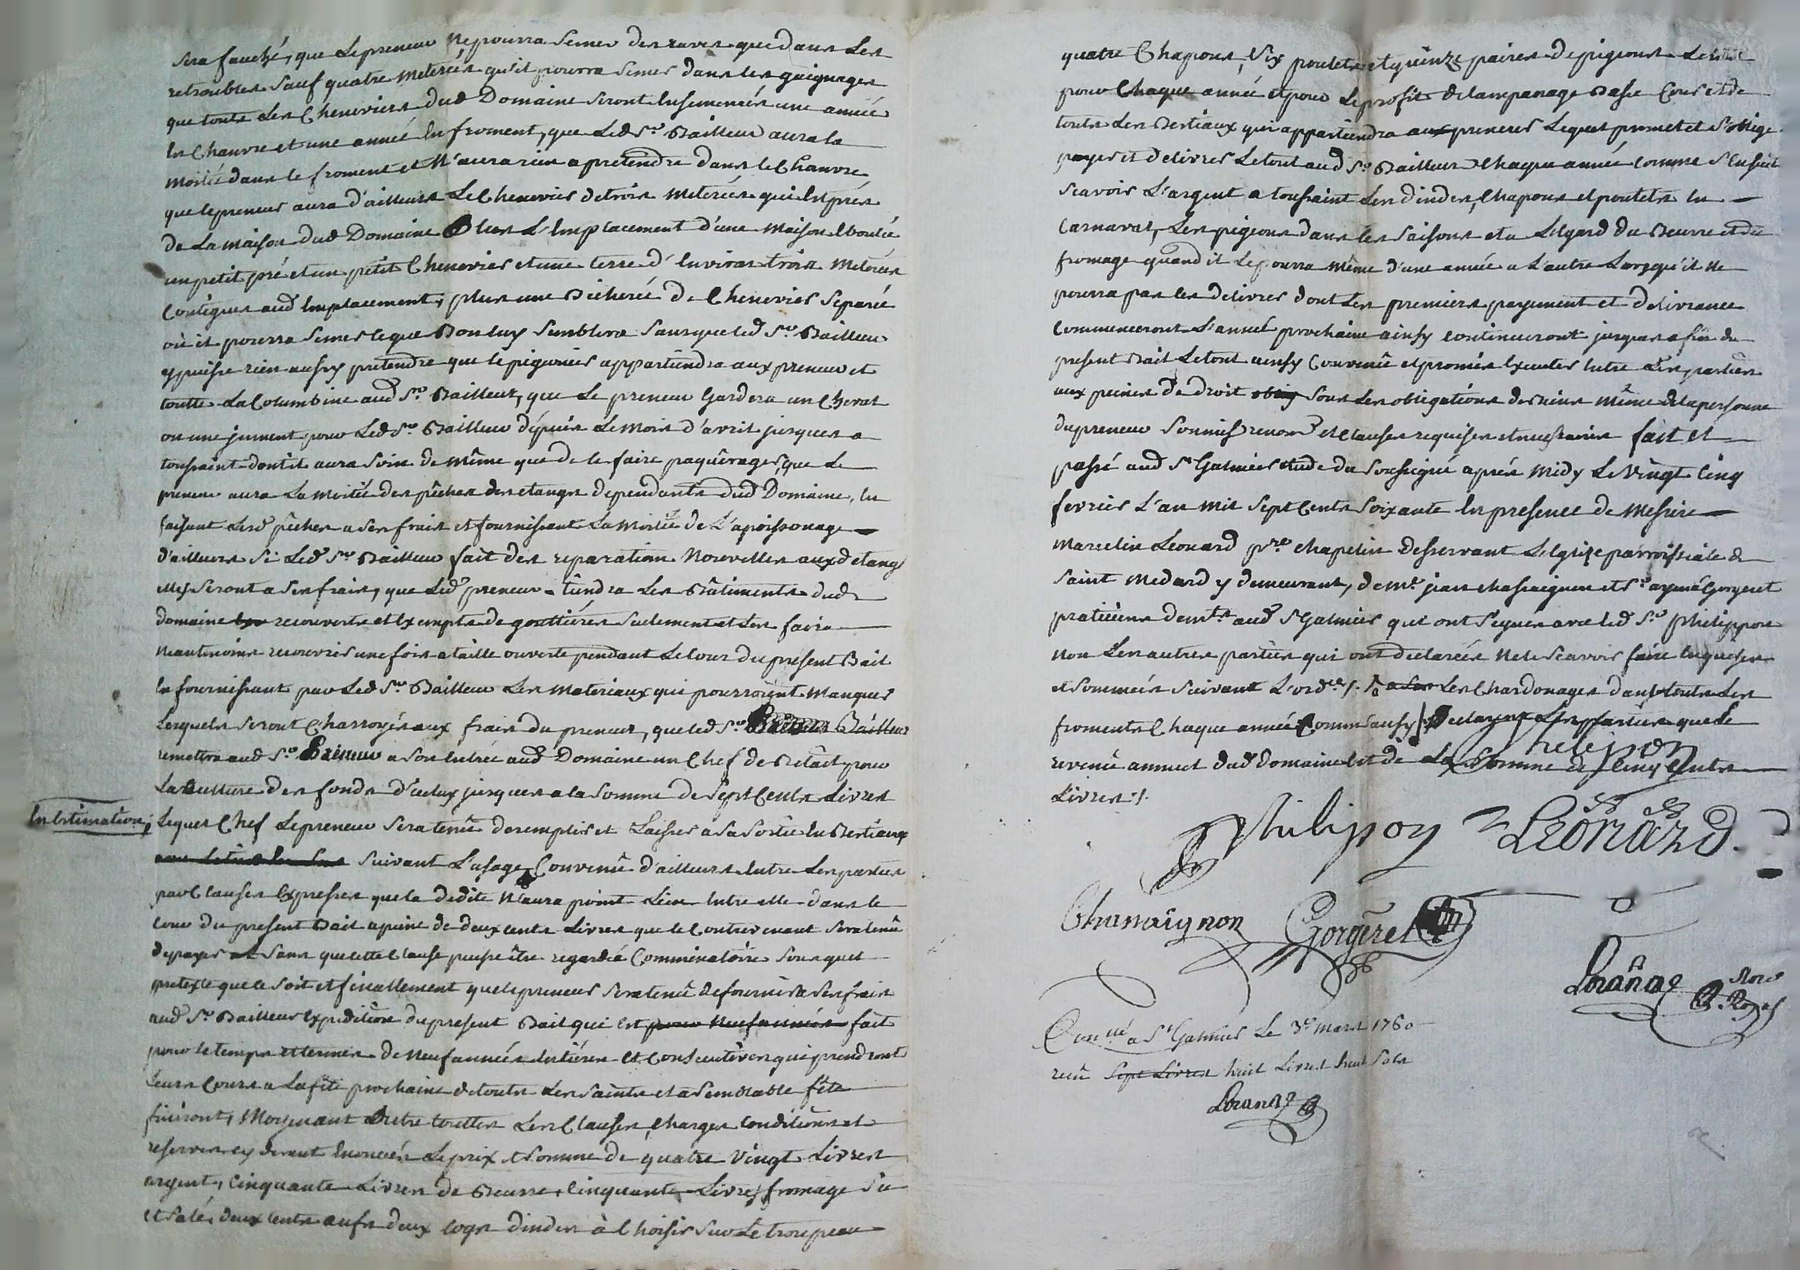 sera fauché, que le preneur ne pourra semer des raves que dans les
retroubles sauf quatre meterées qu'il pourra semer dans les gaignages
que touts les cheneviers dud Domaine seront ensemencés une année
en chanvre et une année en froment, que led Sr. Bailleur aura la
moitié dans le froment et n'aura rien a pretendre dans le chanvre
que le preneur aura d'ailleurs le chenevier de trois meterées qui est prés
de la maison dud Domaine Plus l'emplacement d'une maison eboulée
un petit pré et un petit chenevier et une terre d'environ trois meterées
contigues aud emplacement, plus une bicherée de chenevier separé
où il pourra semer ce que bon luy semblera sans que led Sr. Bailleur
y puisse rien aussy pretendre que le pigeonier appartiendra aux preneur et
toutte la Columbine aud Sr. Bailleur, que le preneur gardera un cheval
ou une jument pour led Sr Bailleur dépuis le mois d'avril jusques a
toussaint dont il aura soin de même que de le faire paquérager, que le
preneur aura la moitié des pêches des etangs dependants dud Domaine, en
faisant lesd pêches a ses frais et fournissant la moitié de l'apoissonage
d'ailleurs si led Sr Bailleur fait des reparation nouvelles auxd etangs
elles seront a ses frais, que led preneur tiendra les Bâtiments dud
domaine recouverts et exempts de gouttiéres seulement et les faire
neantmoins recouvrir une fois a taille ouverte pendant le cour du present Bail
en fournissant par led Sr Bailleur les materiaux qui pourroient manquer
lesquels seront charroyés aux frais du preneur, que led Sr Bailleur
remettra aud Sr Preneur a son entrée aud Domaine un chef de Betail pour
la culture des fonds d'icelux jusques a la somme de sept cents livres
en estimation, lequel chef le preneur sera tenu de remplir et laisser a sa sortie en Bestiaux
suivant l'usage, Convenû d'ailleurs entre les parties
par clauses expresses que la dedite n'aura point lieu entre elle dans le
cour du present Bail a peine de deux cents livres que le contrevenant sera tenû
de payer sans que cette clause puisse être regardée comminatoire sous quel
pretexte que ce soit et finallement que le preneur sera tenû de fournir a ses frais
aud Sr. Bailleur expedition du present Bail qui est pour neuf années fait
pour le temps et termes de neuf années entiéres et consecutives qui prendront
leurs cours a la fête prochaine de touts les saints et a semblable fête
finiront, Moyenant outre touttes les clauses, charges conditions et
reserves cy devant enoncés le prix et somme de quatre vingt livres
argent, cinquante livres de Beurre, cinquante livres fromage
et salé, deux cents oeufs deux coqs dindes à choisir sur le troupeau
quatre chapons, six poulets et quinze paires de pigeons le tout
pour chaque année et pour le profit de lampanage Basse Cour et de
touts les Bestiaux qui appartiendra aux preneur lequel promet et s'oblige
payer et delivrer le tout aud Sr. Bailleur chaque année comme s'ensuit
scavoir l'argent a toussaint les dindes, chapons et poulets en
Carnaval, les pigeons dans les saisons et a l'egard du Beurre et du
fromage quand il le pourra même d'une année a l'autre lorsqu'il ne
pourra pas les delivrer dont les premiers payement et delivrance
commenceront l'année prochaine ainsy continueront jusques a fin du
present Bail le tout ainsy convenû et promis executer entre les parties
aux peines de droit sous les obligations de biens même de la personne
du preneur soumis renon. et clauses requises et necessaires fait et
passé aud St Galmier etude du soussigné aprés midy le vingt cinq
fevrier l'an mil sept cents soixante en presence de Messire
Marcelin Leonard ptre chapelin desservant l'eglise parroissiale de
Saint Medard y demeurant, de Me. jean chassaignon et Sr. aymé Gorgeret
praticiens demts. aud St Galmier qui ont signés avec led Sr Philippon
non les autres parties qui ont declarées ne le scavoir faire enquises
et sommées suivant l'ordce. /. les chardonages dans touts les
froments chaque année comm' aussy / Declarant les parties que le
revenû annuel dud domaine est de la Somme de cinq cents
livres /.
Philippon
Philippon Léonard
Chassaignon Gorgeret
Lorange Nore
Royal
Controllé a St Galmier le 3e mars 1760
recû sept livres huit livres huit sols
Lorange